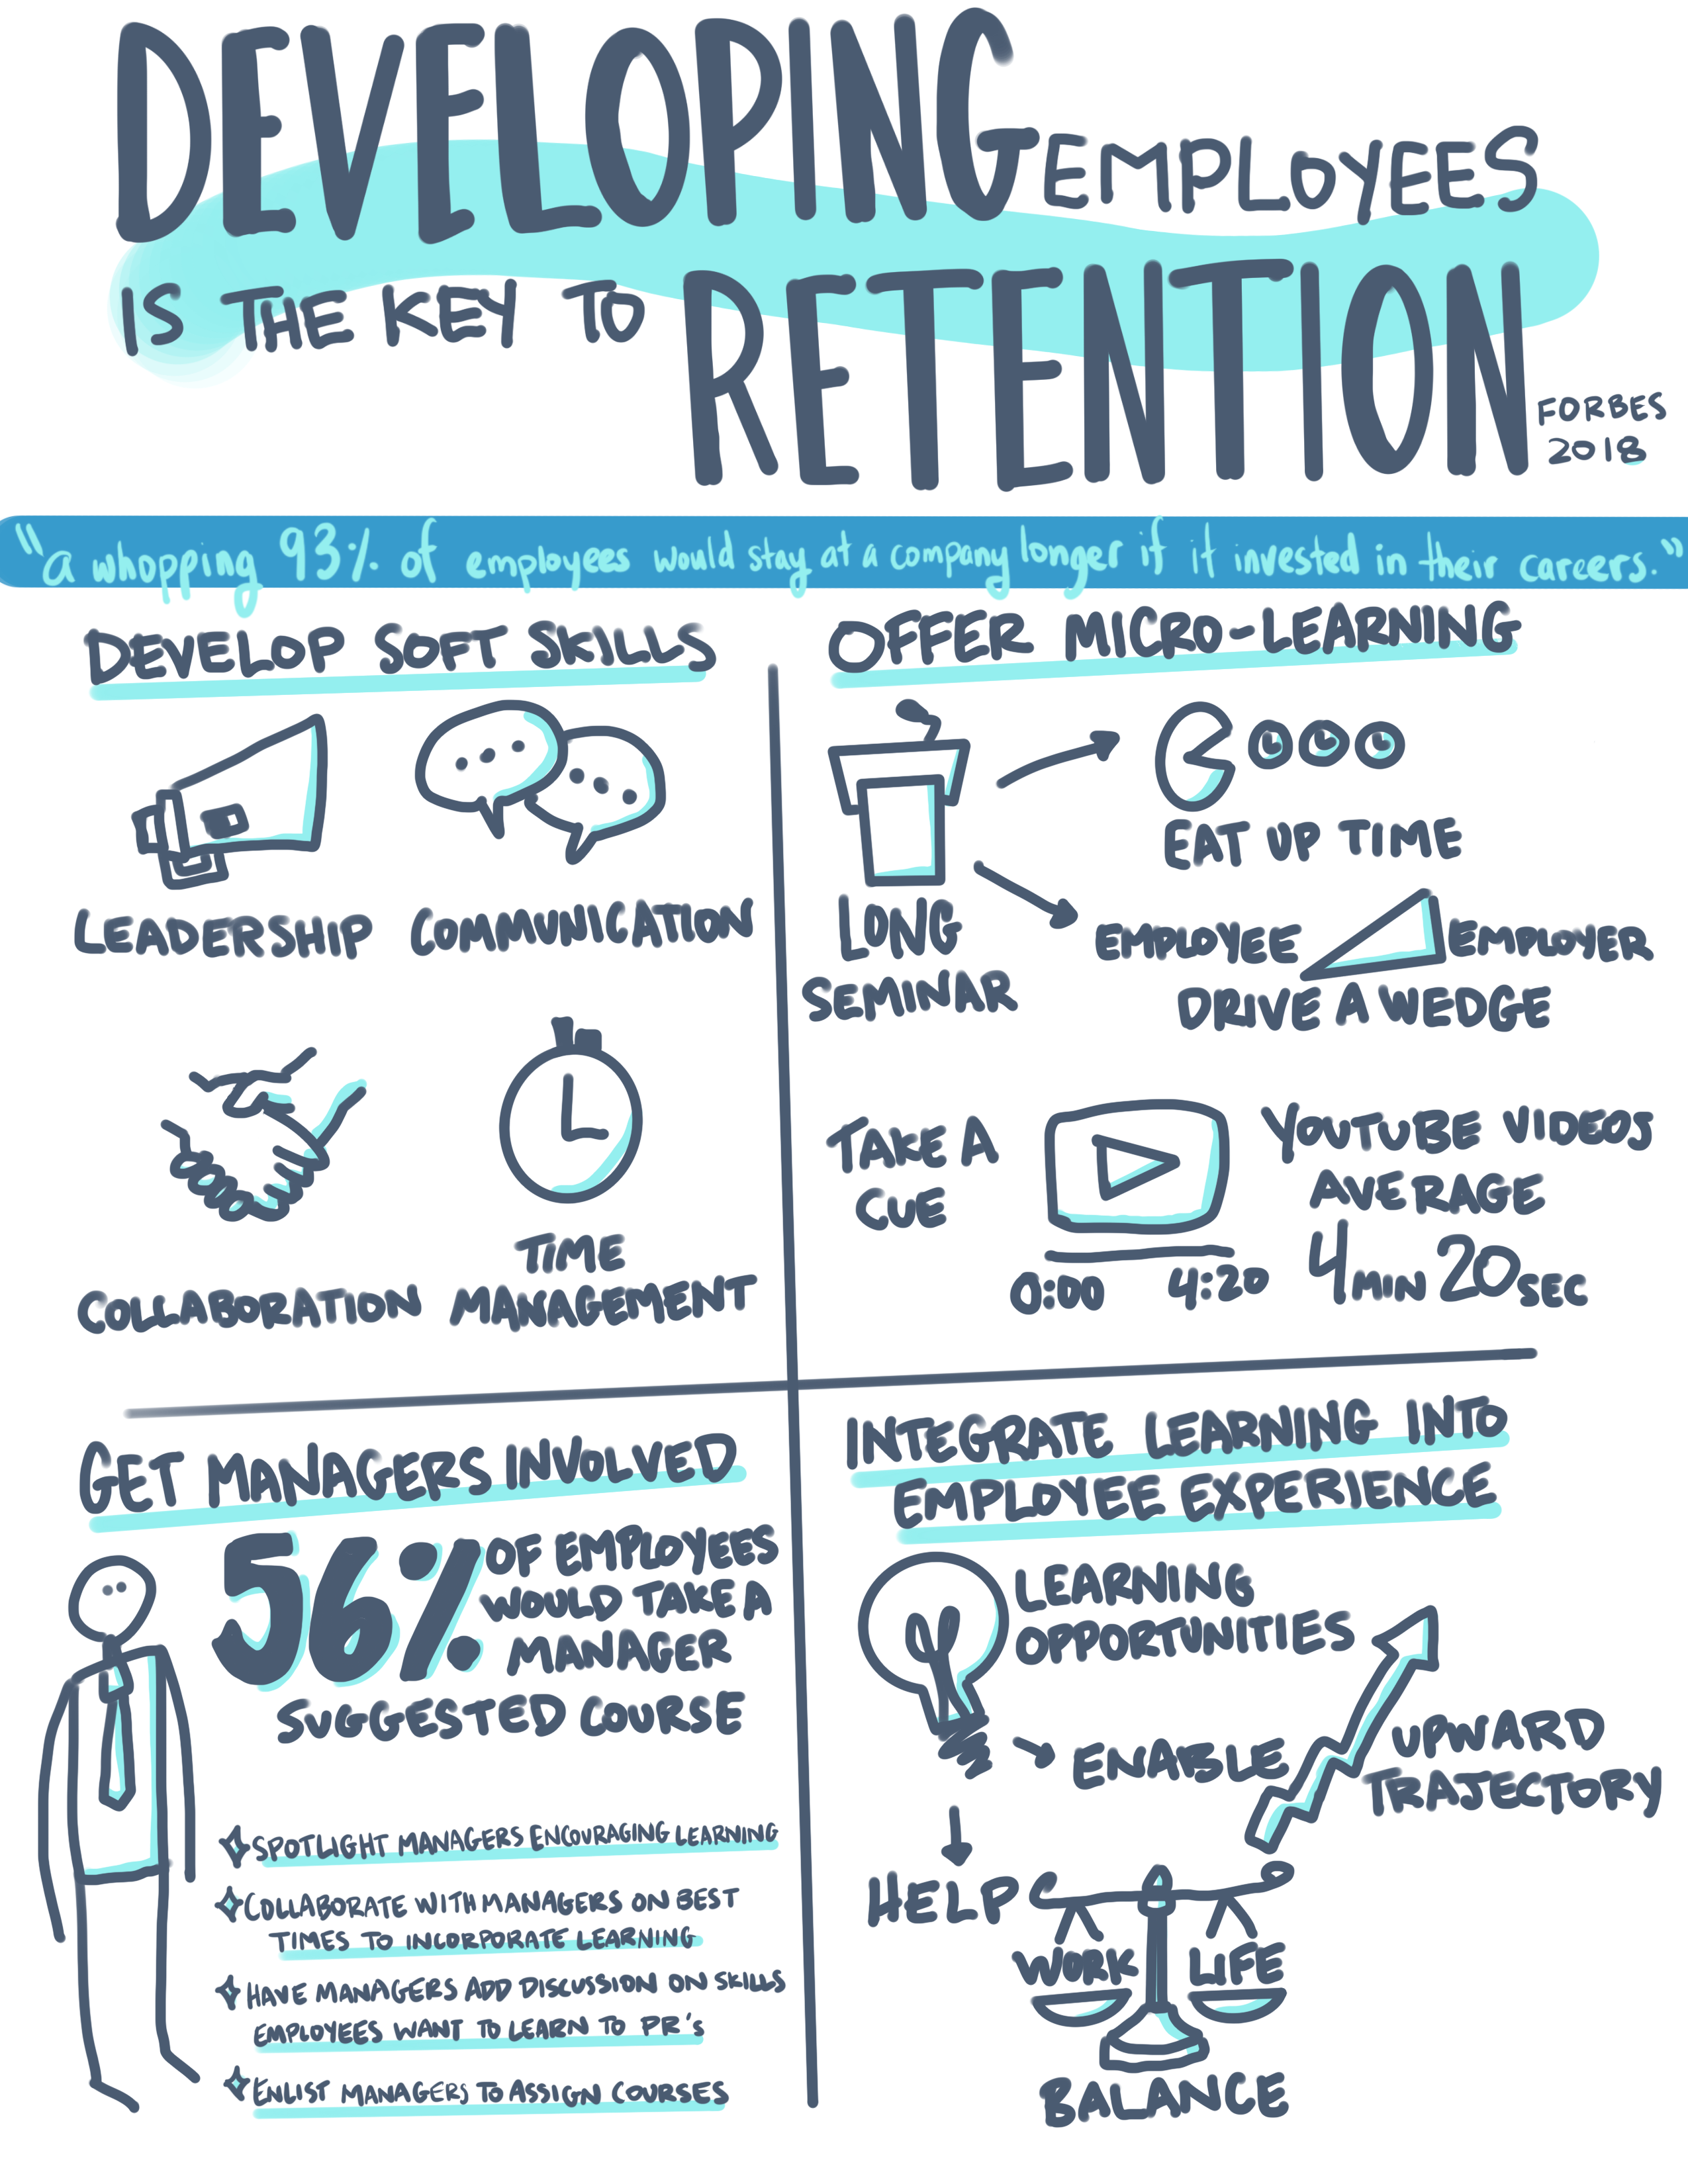 DEVELOPING EMPLOYEES
IS THE KEY TO RETENTION
FORBES
2018
"a whopping 93% of employees would stay at a company longer if it invested in their careers."
DEVELOP SOFT SKILLS
LEADERSHIP
COMMUNICATION
COLLABORATION
TIME
MANAGEMENT
OFFER MICRO-LEARNING
LONG
SEMINAR
EAT UP TIME
EMPLOYEE
EMPLOYER
DRIVE A WEDGE
TAKE A
CUE
0:00 4:20
YOUTUBE VIDEOS
AVERAGE
4 MIN 20 SEC
GET MANAGERS INVOLVED
56% OF EMPLOYEES
WOULD TAKE A
MANAGER
SUGGESTED COURSE
SPOTLIGHT MANAGERS ENCOURAGING LEARNING
COLLABORATE WITH MANAGERS ON BEST
TIMES TO INCORPORATE LEARNING
HAVE MANAGERS ADD DISCUSSION ON SKILLS
EMPLOYEES WANT TO LEARN TO PR's
ENLIST MANAGERS TO ASSIGN COURSES
INTEGRATE LEARNING INTO
EMPLOYEE EXPERIENCE
LEARNING
OPPORTUNITIES
ENABLE
UPWARD
TRAJECTORY
HELP
WORK LIFE
BALANCE